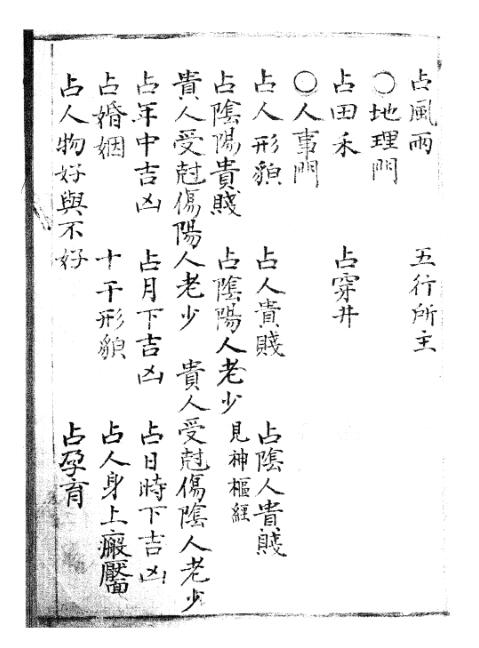 占風雨 五行所主
○地理門
占田禾 占穿井
○人事門
占人形貌 占人貴賤 占陰人貴賤
占陰陽貴賤 占陰陽人老少 見神樞經
貴人受尅傷陽人老少 貴人受尅傷陰人老少
占年中吉凶 占月下吉凶 占日時下吉凶
占婚姻 十干形貌 占人身上瘢靨
占人物好與不好 占孕育